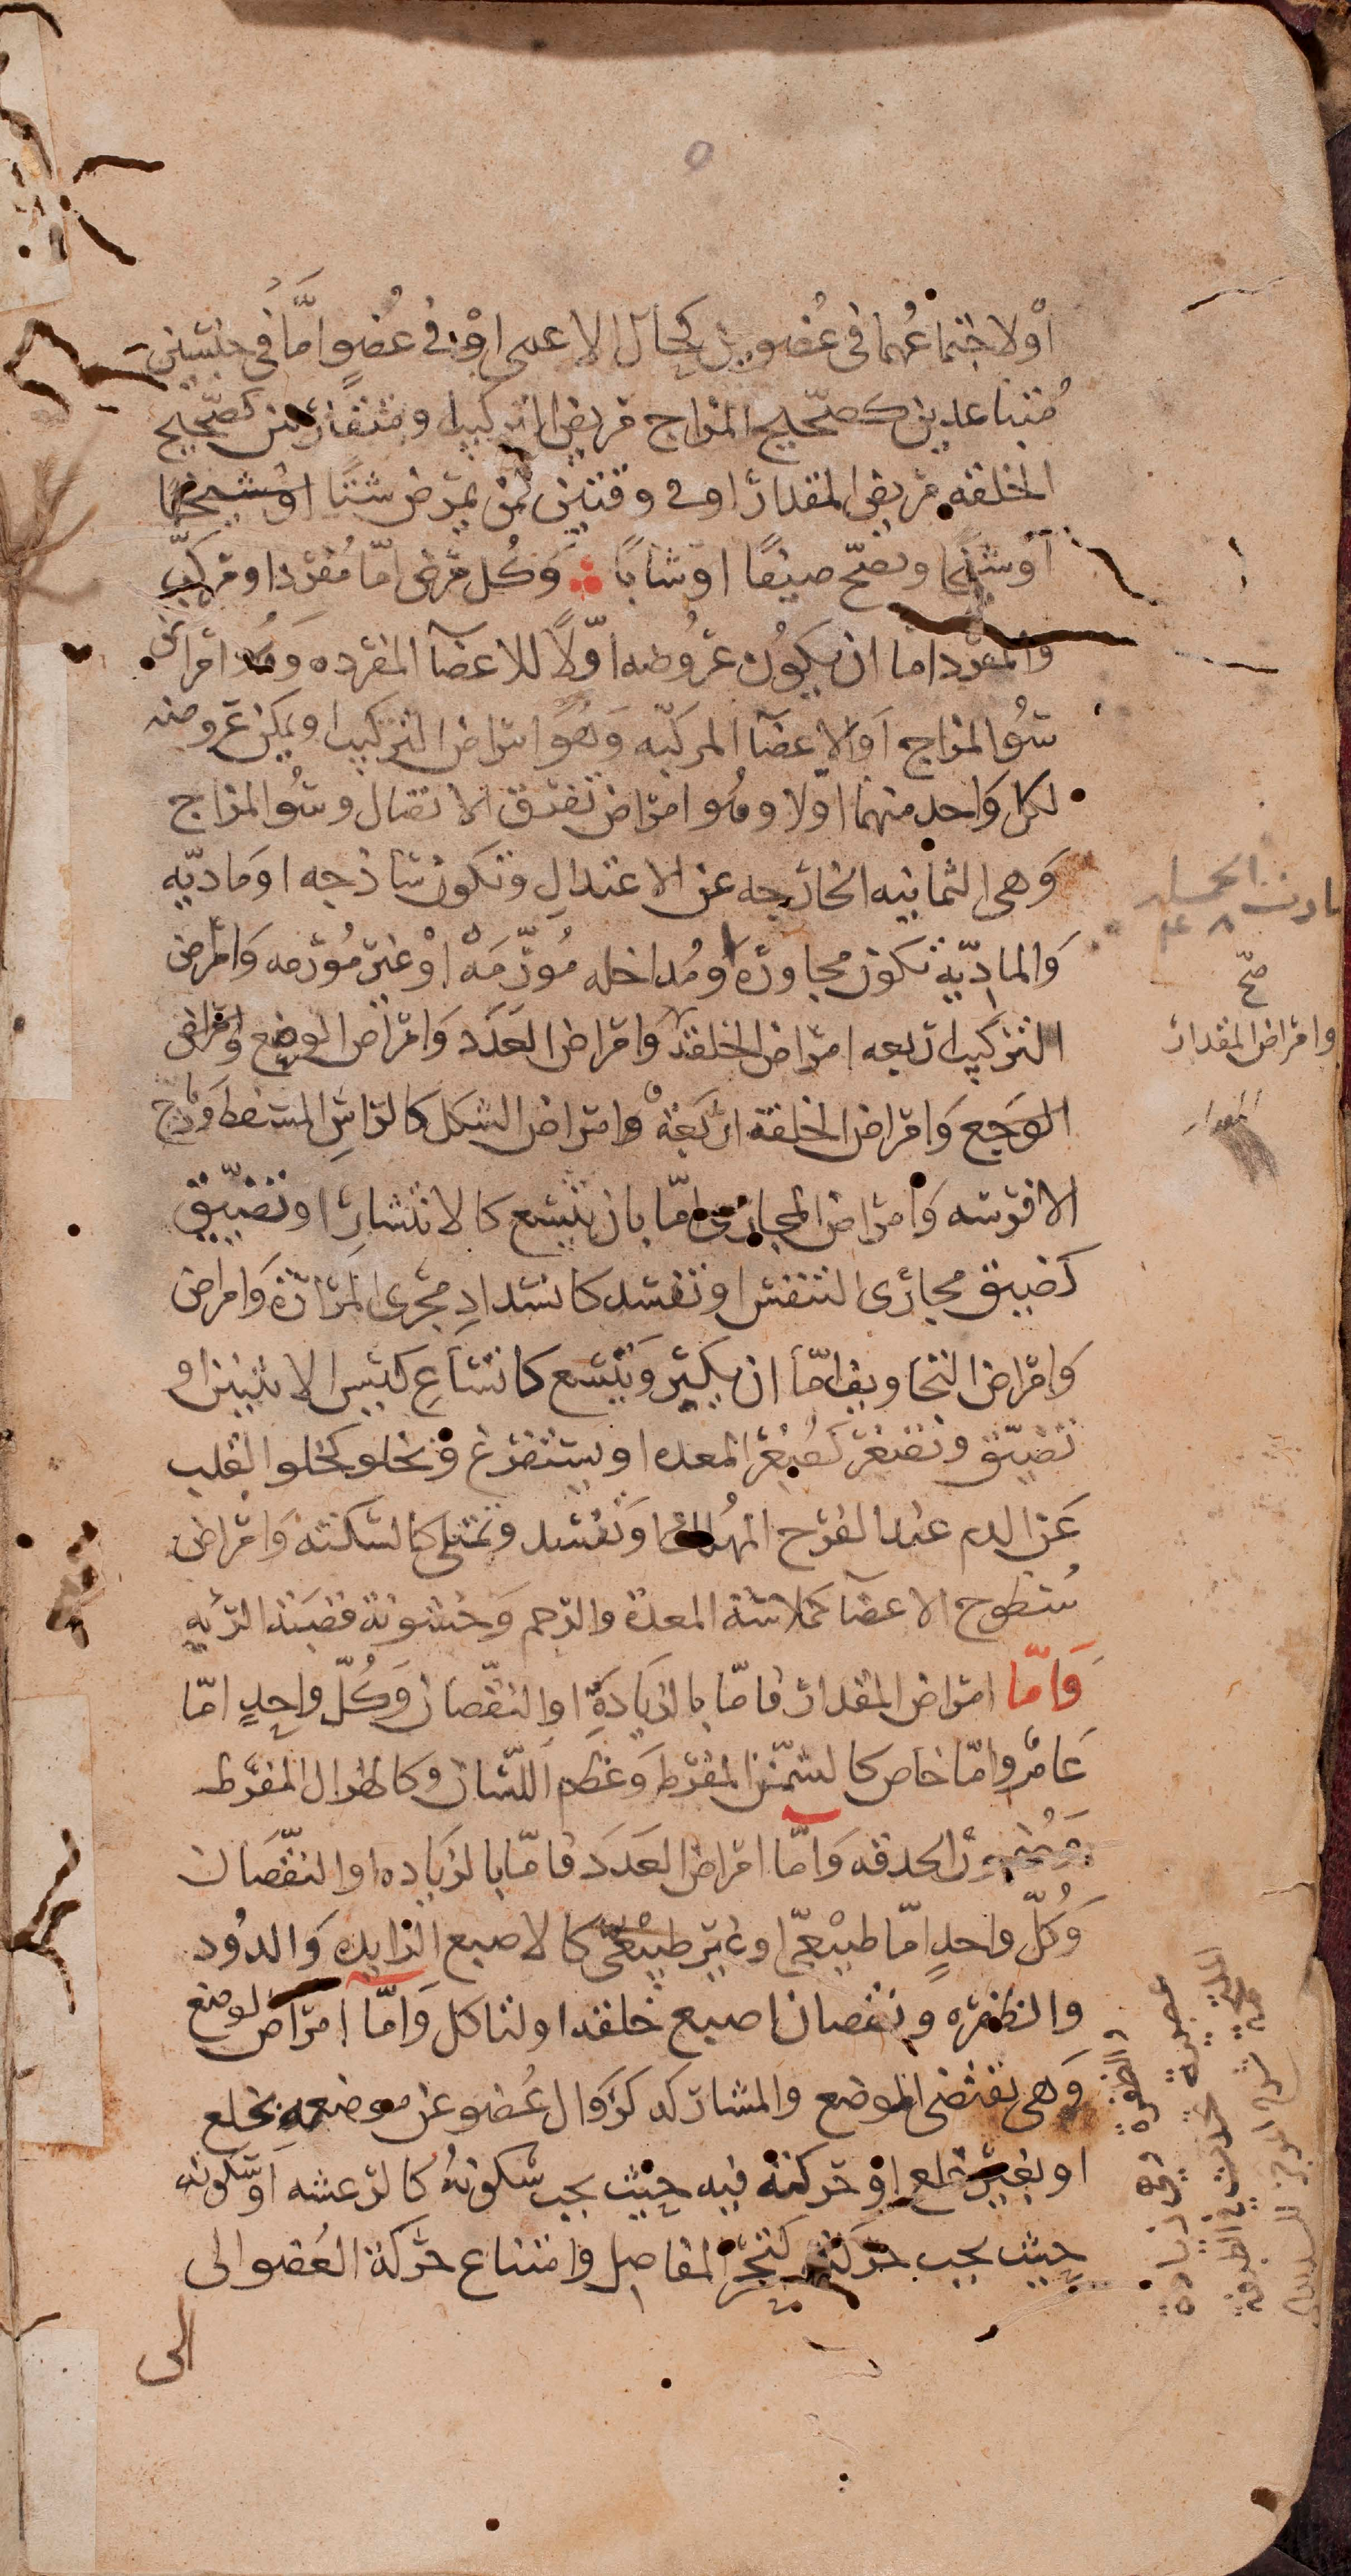 ٥
اوْلاجتماعُهما فى عُضوين كحال الاعمى اوْ فى عُضوٍ امَّا فى جنسين
مُتباعدين كصَحيح المزاج مريض التركيب ومتقاربين كصَحيح
الخلقه مريض المقدار او فى وقتين لمن يمرض شتاً
اوشيخًا ويصَح صيفًا اوشابًا وَكُل مرض امّا مُفرد او مركب
والمفرد امّا ان يكون عروضه اوّلاً للاعضآ المفرده وهُو امراض
سُو المزاج اوَ الاعضآ المركبّه وَهُو امراض التركيب او يمكن عروضه
لكل واحد منهما اولا وهُو امراض تفرق الاتصال وسُو المزاج
وَهى الثمانيه الخارجه عن الاعتدالِ وتكون ساذجه او مَاديّه
وَالماديّه تكون مجاوره ومُداخله مُورّمَهْ اوْ غير مُورمه وَامراض
التركيب اربعه امراض الخلقة وَامراض العَدَد وَامراض الوضع وامراض
الوجع وَامراض الخلقه اربَعَهْ وامراض الشكل كالراسِ المسفط
الافرسه وَامراض المجارى امّا بان يتسع كالانتشارِ او تضيّيق
كضيق مجارى التنفس او تنسد كانسدادِ مجرى المرارة وَامراض
وَامراض التجاويف امّا ان يكبر وَيتسع كاتساعِ كيس الانثيين او
تضيّق وتصغر كصُغر المعده او يستفرغ وتخلو كخلو القلب
عَن الدم عند الفرح المُهلك او تنسد وتمتلى كالسكته وَامراض
سُطوح الاعضآ كملاسة المعدة والرحم وَخشونة قصبَة الريه
وَامّا امراض المقدار فامّا بالزيادَةِ او النقصان وَكُلّ واحدٍ امّا
عَام وامّا خاص كالسّمن المفرط وَعظم اللسان وكالهزال المفرط
الحدقه وَامّا امراض العَدَد فامّا بالزيَاده او النقصَان
وَكُلّ واحدٍ امّا طبيْعىّ او غير طبيْعىّ كالاصبع الزايد وَالدُود
والظفره ونقصان اصبع خلقه او لتاكل وَامّا امراض الوضع
وَهى تقتضى الموضع وَالمشاركه كزوَال عُضو عن موضعه بخلع
او بغير خلع اوْ حركته فيه حيث يجب سكونهُ كالرعشه اوْ سكونه
حيث يجب حركته كتحجر المفاصل وامتناع حركة العُضو الى
الى
صح
وامراض المقدار
المقدار
والظفرة هى زيادة
عصبية